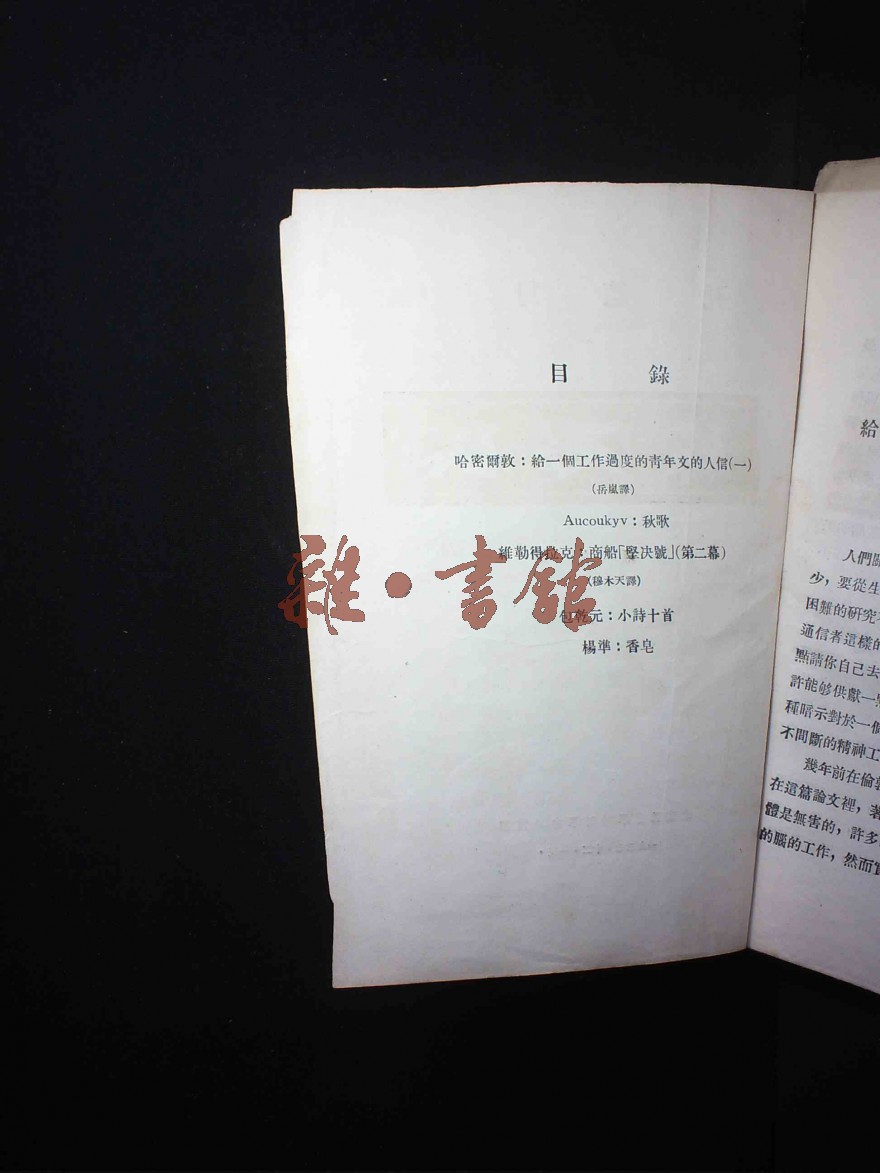 目錄
哈密爾敦：給一個工作過度的靑年文的人信(一)
(岳嵐譯)
Aucoukyv：秋歌
維勒得拉克：商船「堅決號」(第二幕)
(穆木天譯)
包乾元：小詩十首
楊準：香皂
雜·書館
給
人們關
少，要從生
困難的研究
通信者這樣的
點請你自己去
許能够供獻一
種暗示對於一個
不間斷的精神工
幾年前在倫敦
在這篇論文裡，著
體是無害的，許多
的腦的工作，然而實